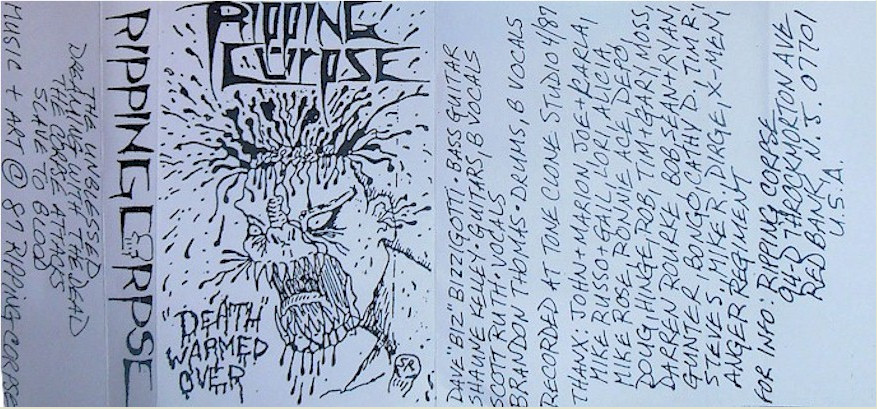 THE UNBLESSED
DEALING WITH THE DEAD
THE CORPSE ATTACKS
SLAVE TO BLOOD
MUSIC + ART @ 87 RIPPING CORPSE
RIPPING CORPSE
RIPPING
CORPSE
"DEATH"
WARMED
OVER
SR
DAVE "BIZ" BIZZIGOTTI • BASS GUITAR
SHAUNE KELLEY • GUITARS, B VOCALS
SCOTT RUTH • VOCALS
BRANDON THOMAS • DRUMS, B VOCALS
RECORDED AT TONE CLONE STUDIO 4/87
THANX: JOHN + MARION, JOE + KARLA,
MIKE RUSSO + GAIL, LORI, ALICIA,
MIKE ROSE, RONNIE, ACE, DEPO,
DOUG, HINGE, ROB, TIM + GARY, MOSS,
DARREN ROURKE, BOB, SEAN + RYAN,
GUNTER, BONGO, CATHY D, TIM R,
STEVE S, MIKE R, DIRGE, X-MEN,
ANGER REGIMENT
FOR INFO: RIPPING CORPSE
94-D THROCKMORTON AVE
RED BANK, N.J. 07701
U.S.A.